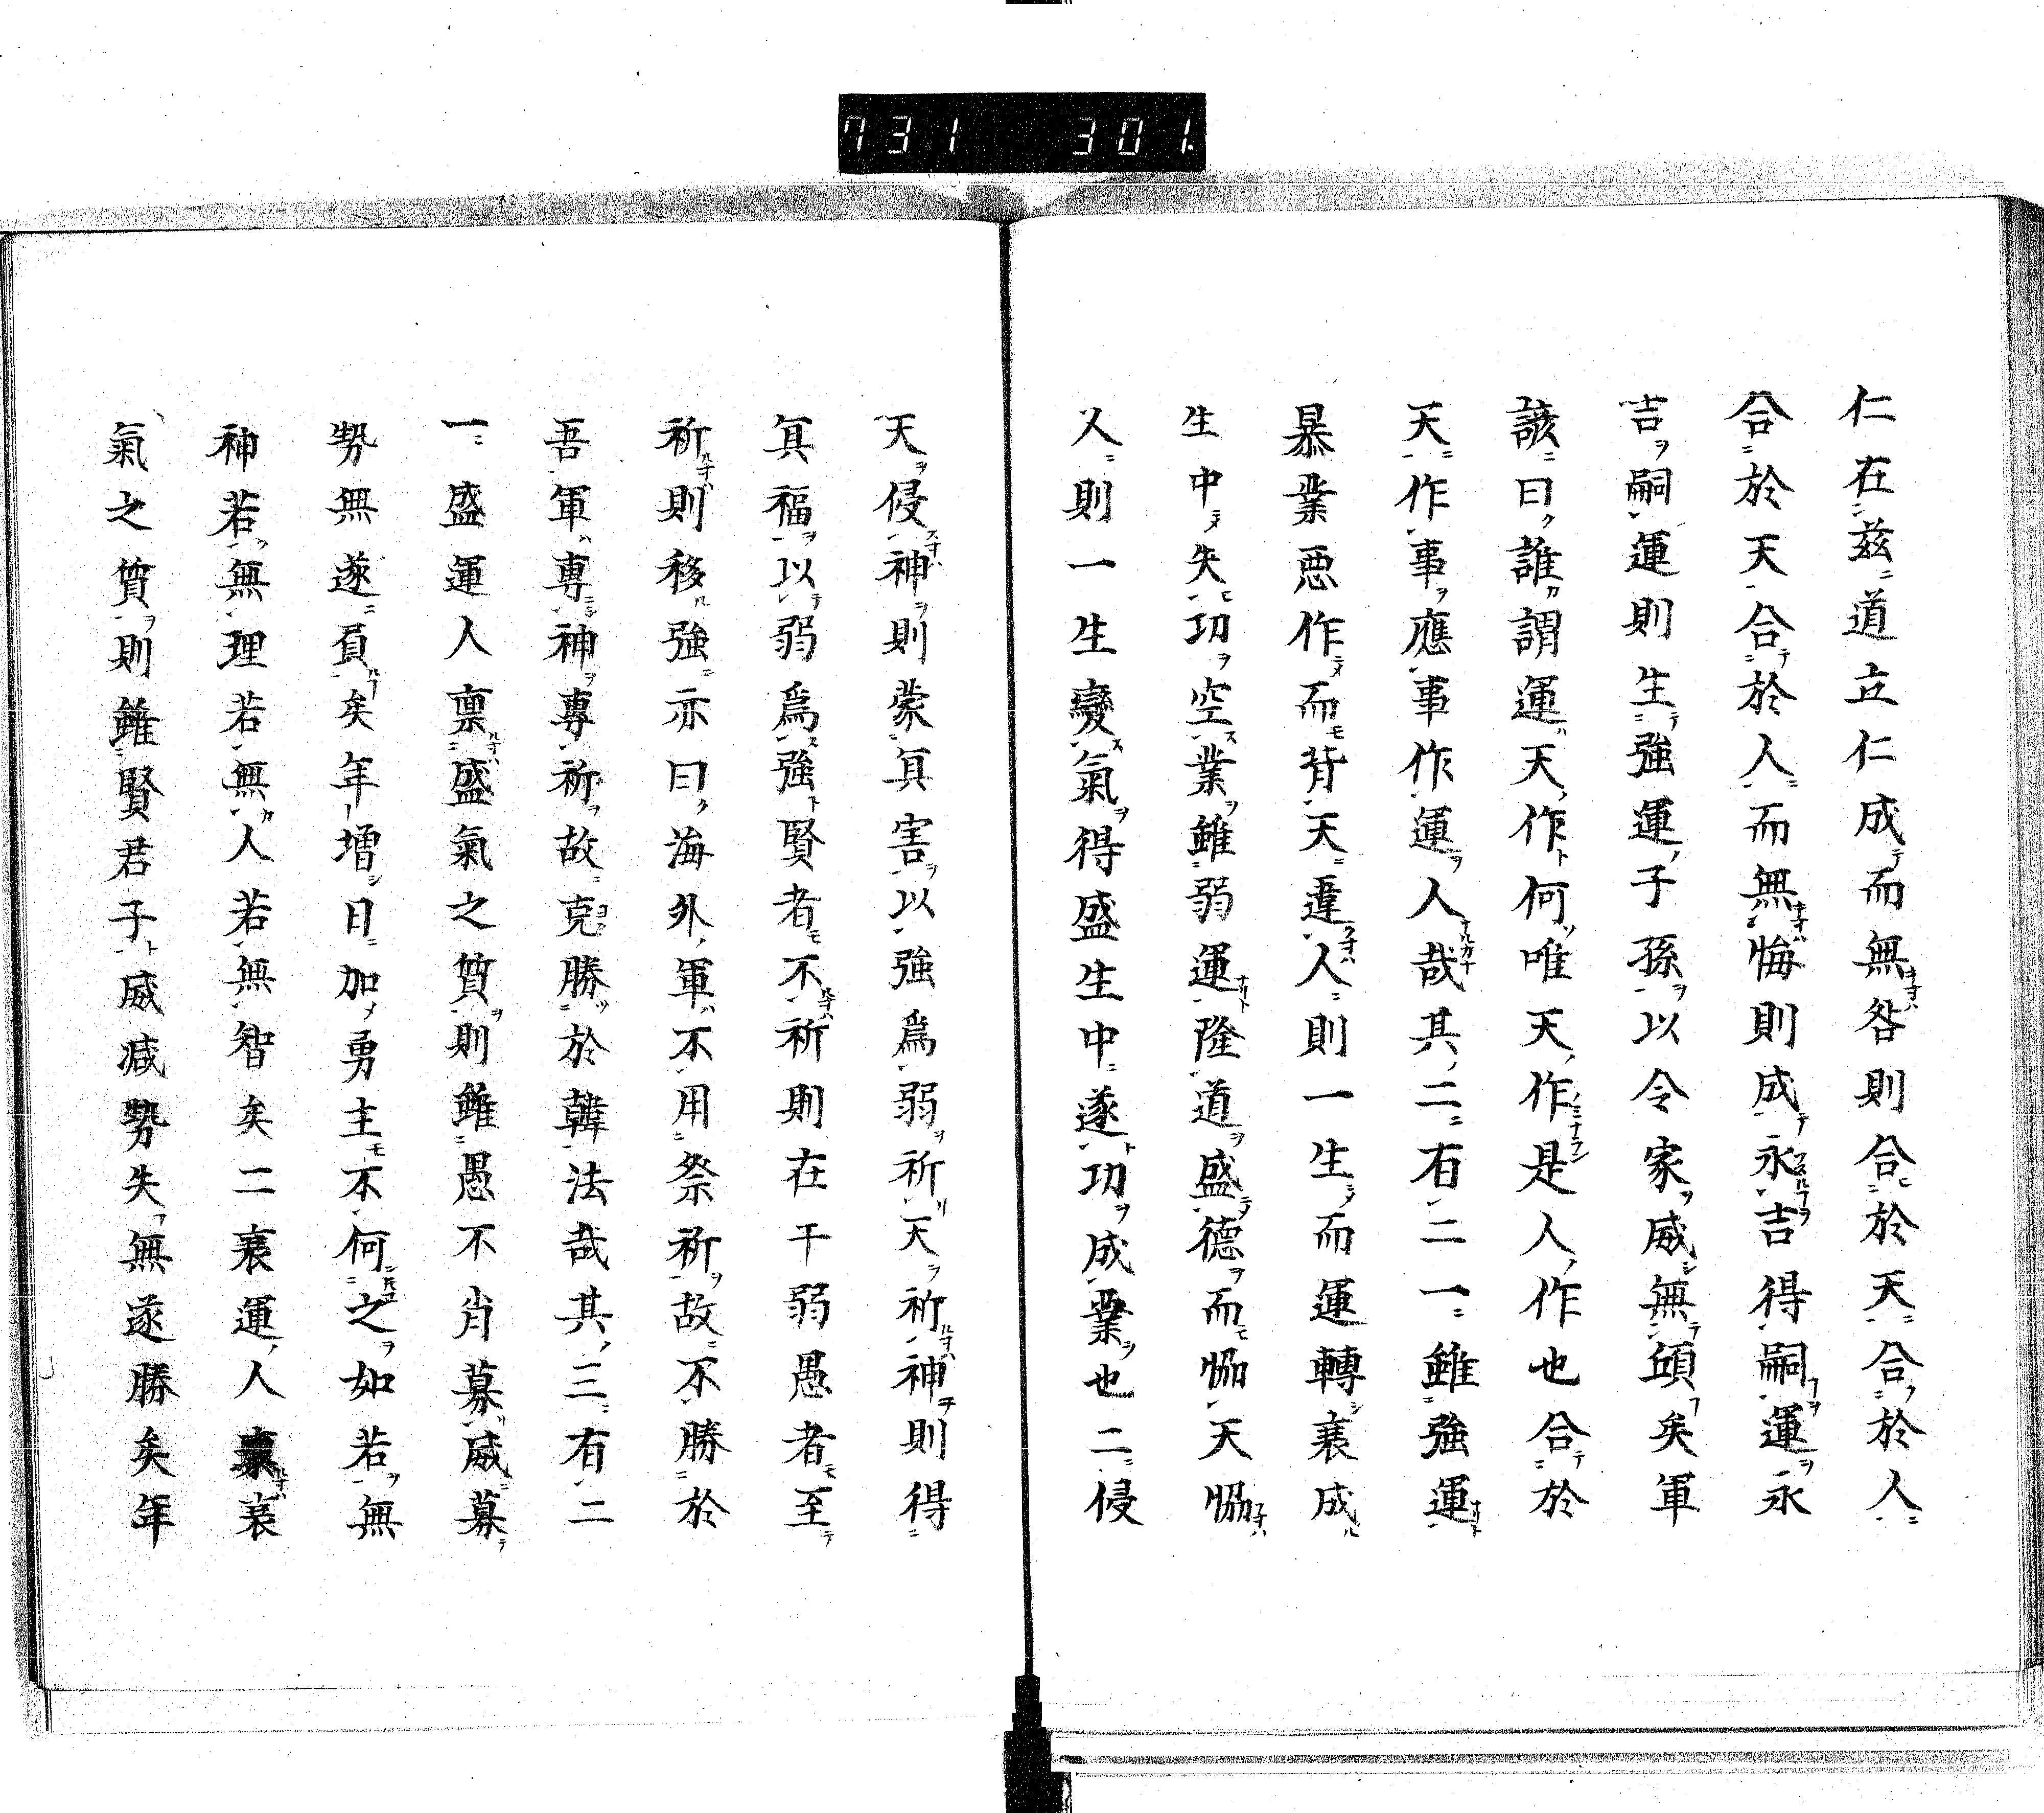 731 301
仁在茲道立仁成而無咎則合於天合於人
合於天合於人而無悔則成永吉得嗣運永
吉嗣運則生強運子孫以令家威無傾矣軍
諺曰誰謂運天作何唯天作是人作也合於
天作事應事作運人哉其二有二一雖強運
暴業惡作而背天違人則一生而運轉衰成
生中失功空業雖弱運隆道盛德而恊天恊
人則一生變氣得盛生中遂功成業也二侵
天侵神則蒙其害以強為弱祈天祈神則得
其福以弱為強賢者不祈則在干弱愚者至
祈則移強亦曰海外軍不用祭祈故不勝於
吾軍專神專祈故克勝於韓法哉其三有二
一盛運人稟盛氣之質則雖愚不肖募威募
勢無遂負矣年增日加勇主不何之如若無
神若無理若無人若無智矣二衰運人稟衰
氣之質則雖賢君子威減勢失無遂勝矣年